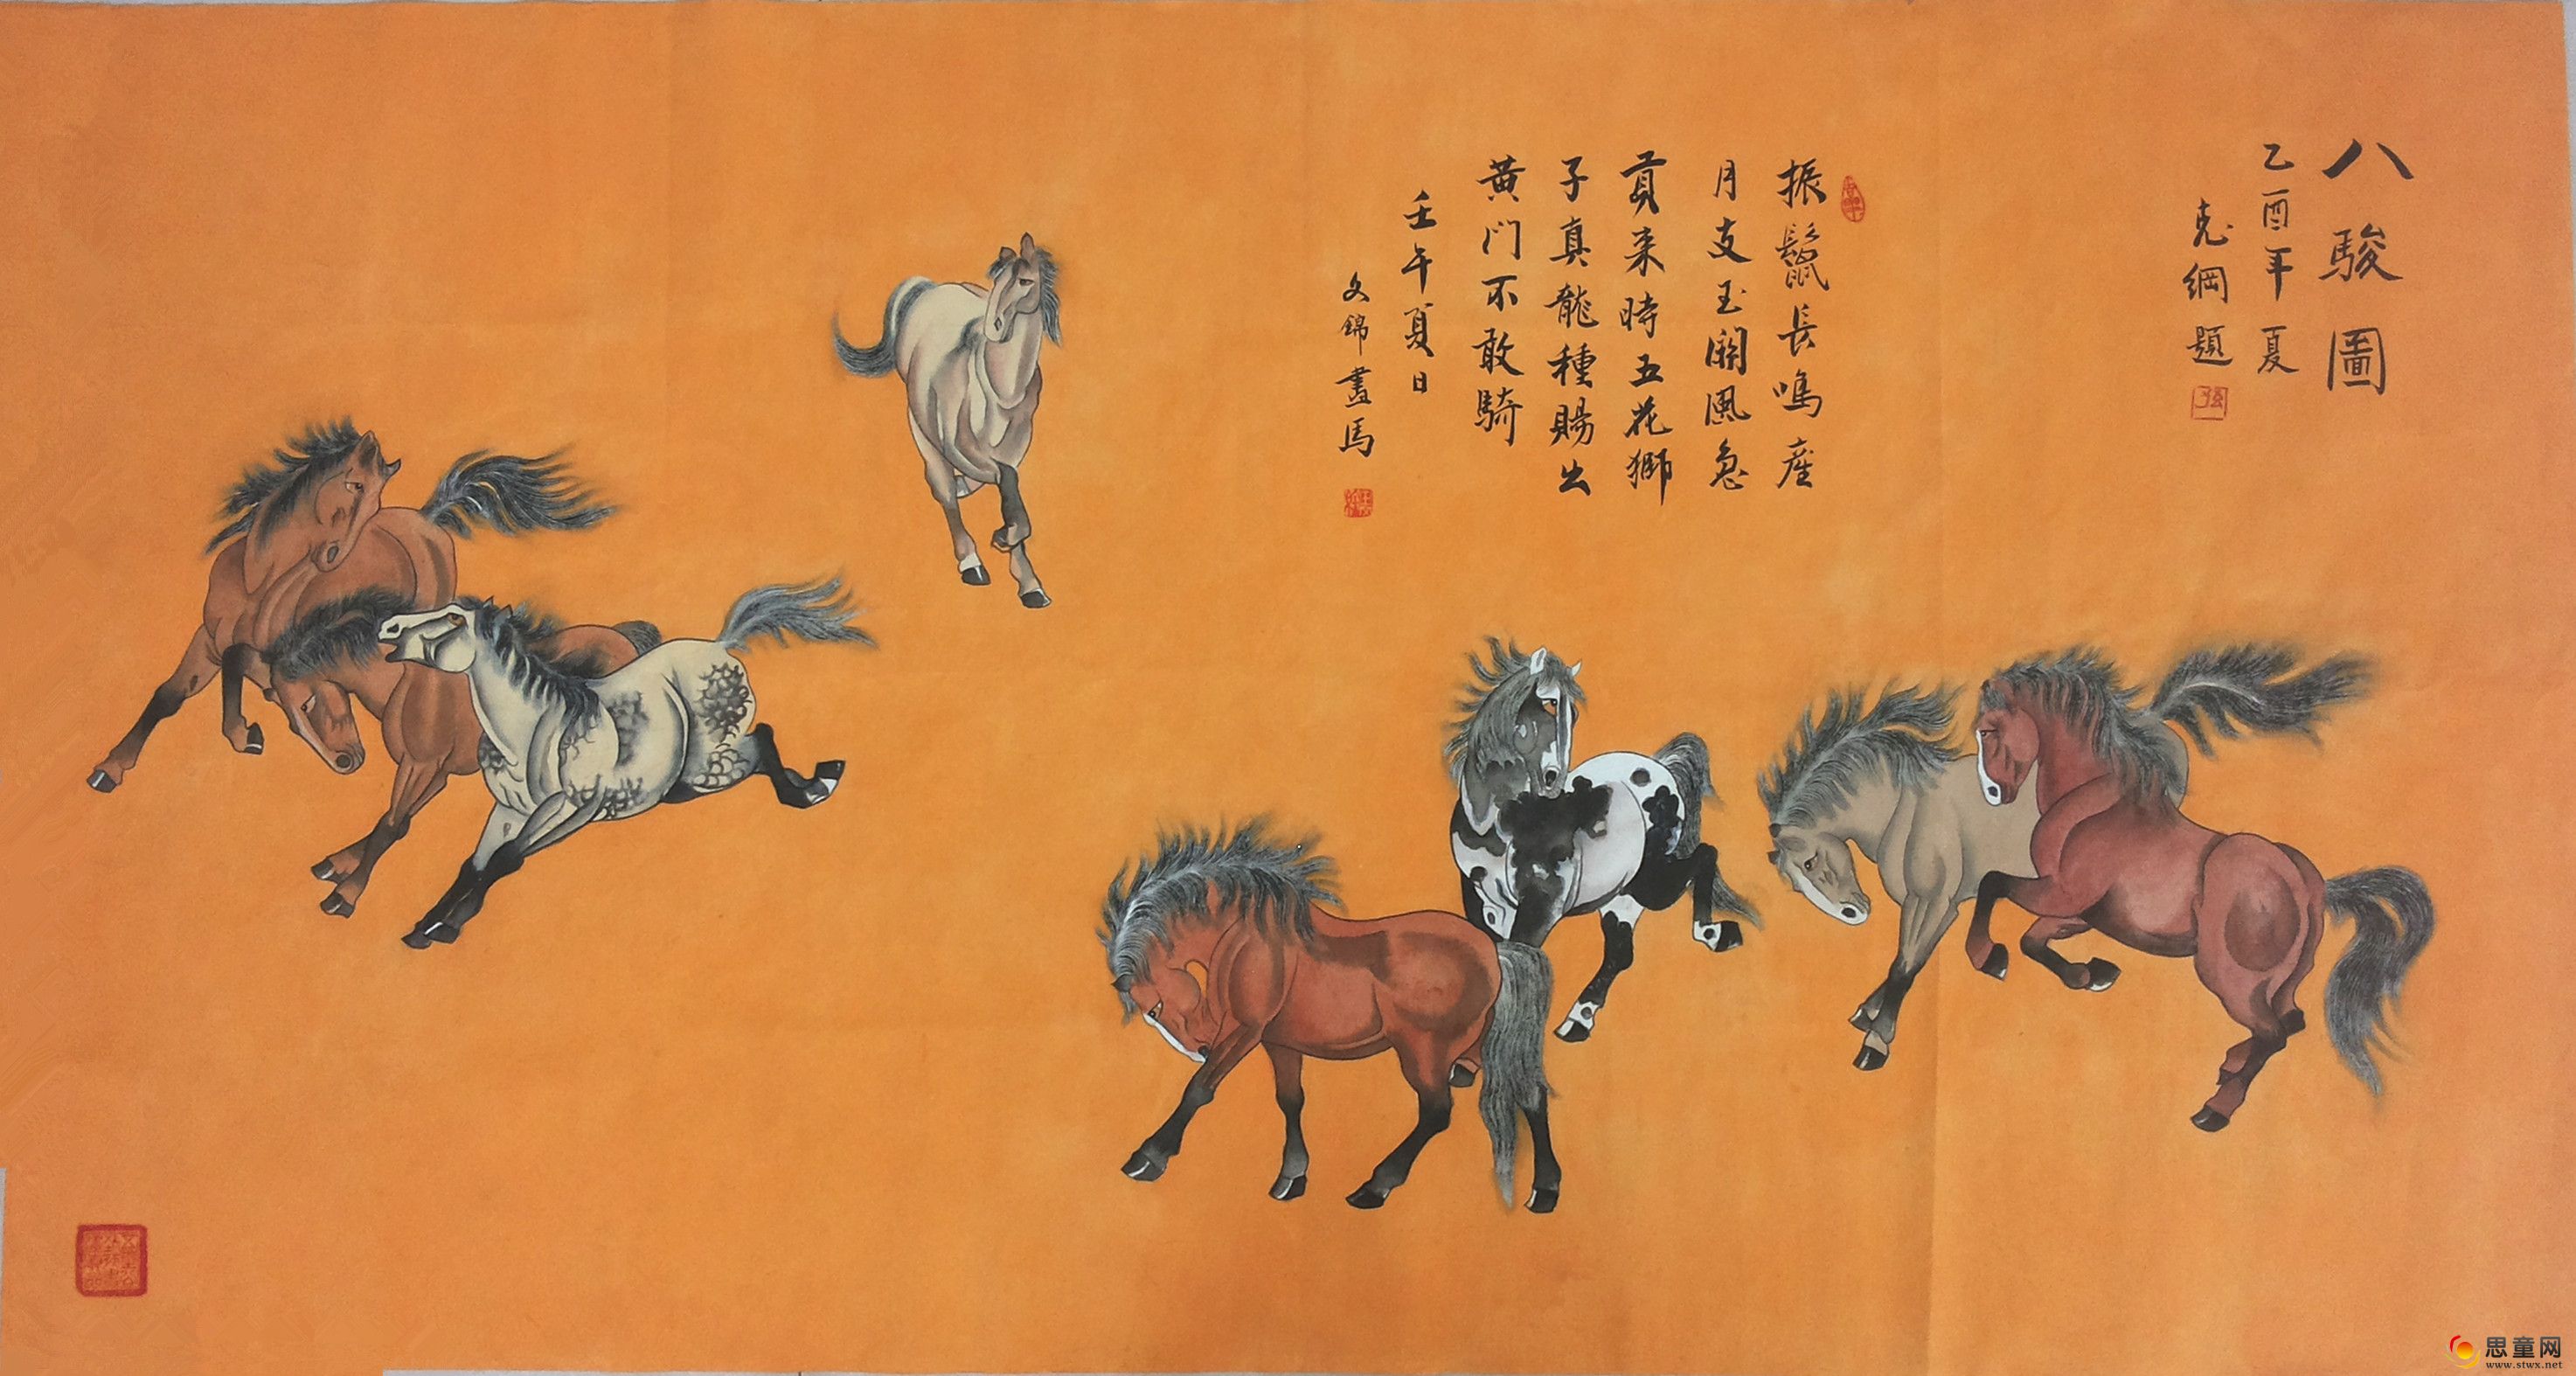 八駿圖
乙酉年夏
克綱題
振鬣長鳴産
月支玉關風急
貢来時五花獅
子真龍種賜出
黄门不敢騎
壬午夏日
文錦畫馬
思童网
www.stwx.net